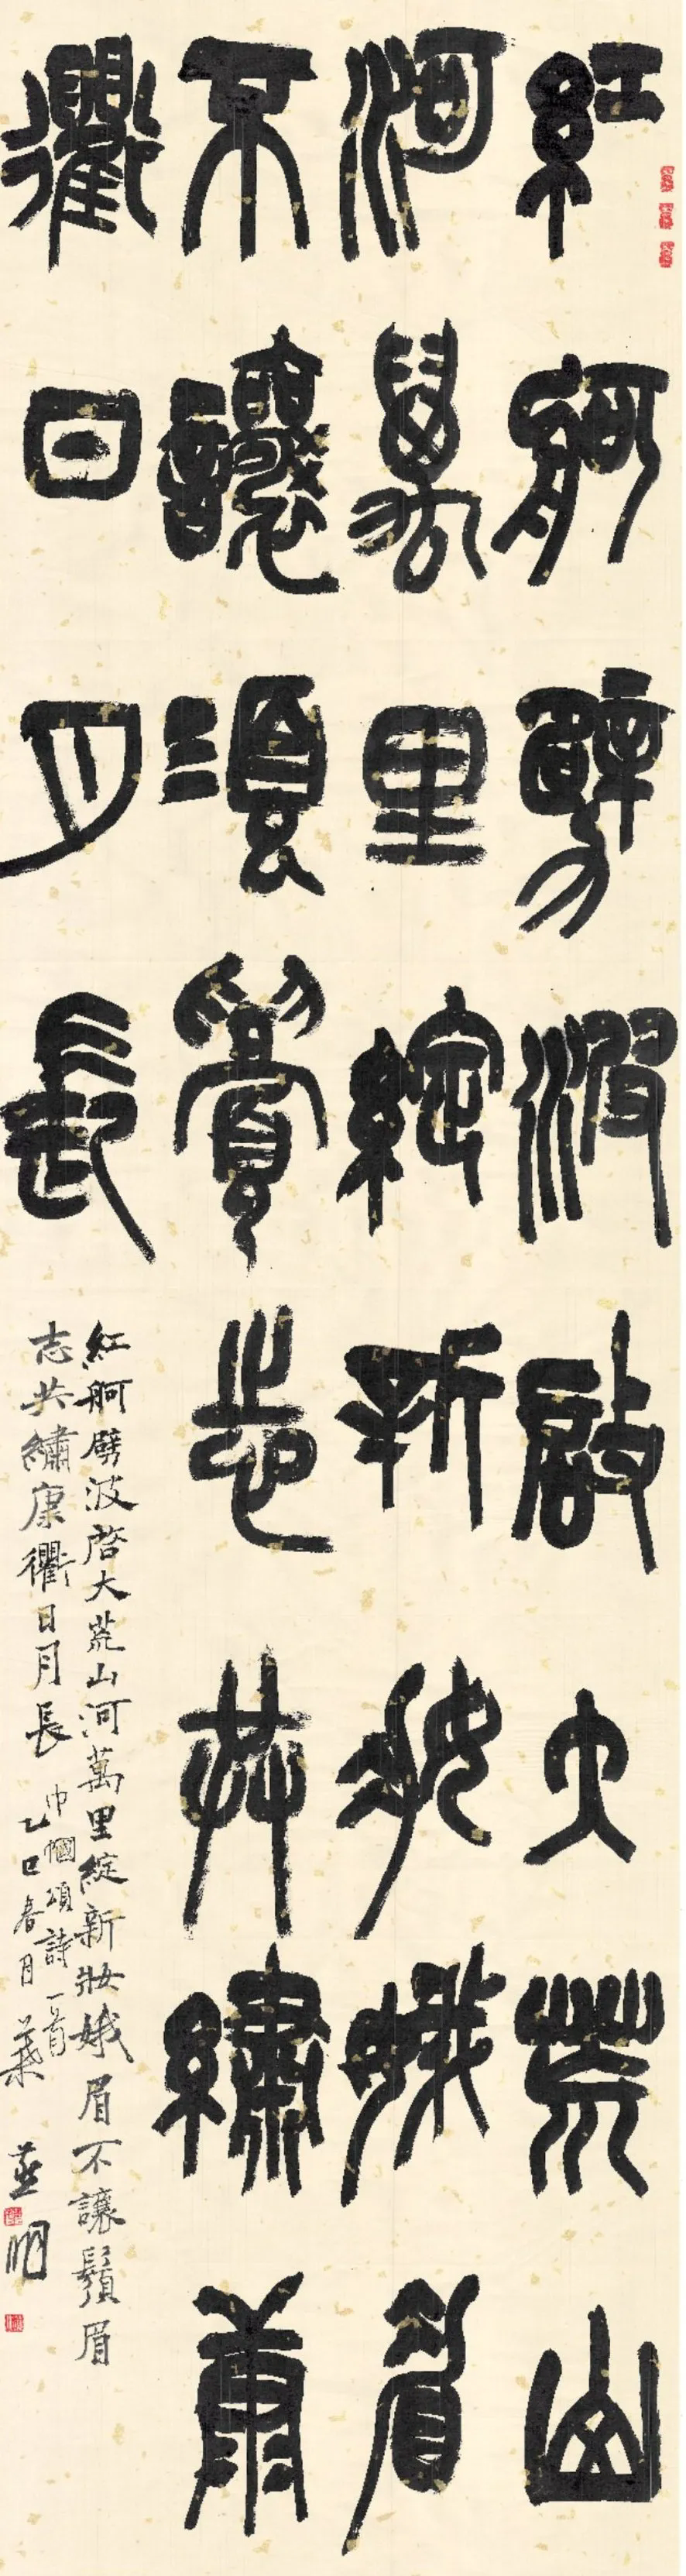 紅舸劈波啟大荒山
河萬里綻新妝娥眉
不讓須眉志共繡康
衢日月長
紅舸劈波啓大荒山河萬里綻新妝娥眉不讓鬚眉
志共繡康衢日月長
巾幗頌詩一首
乙巳春月葉明